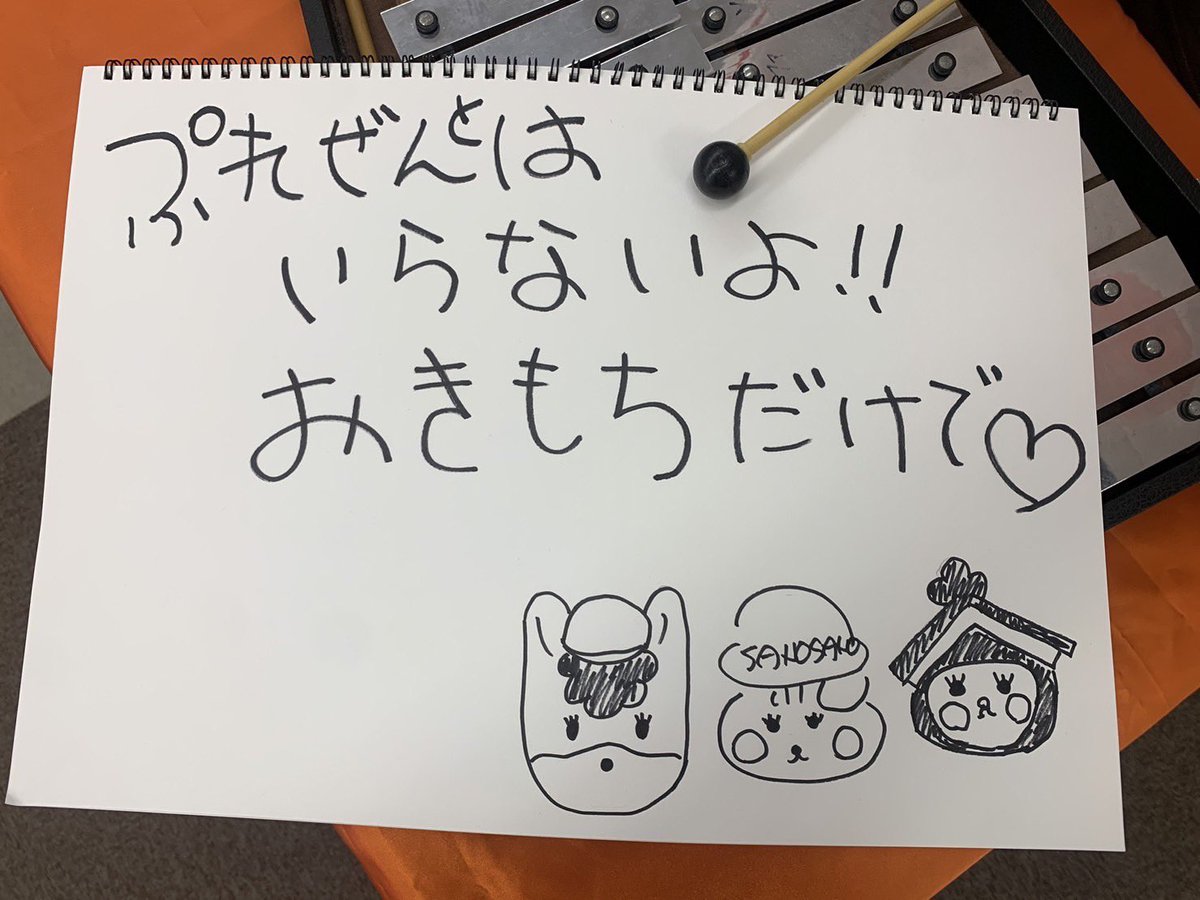 ぷれぜんとは
いらないよ!!
おきもちだけで♡
SAKOSAKO